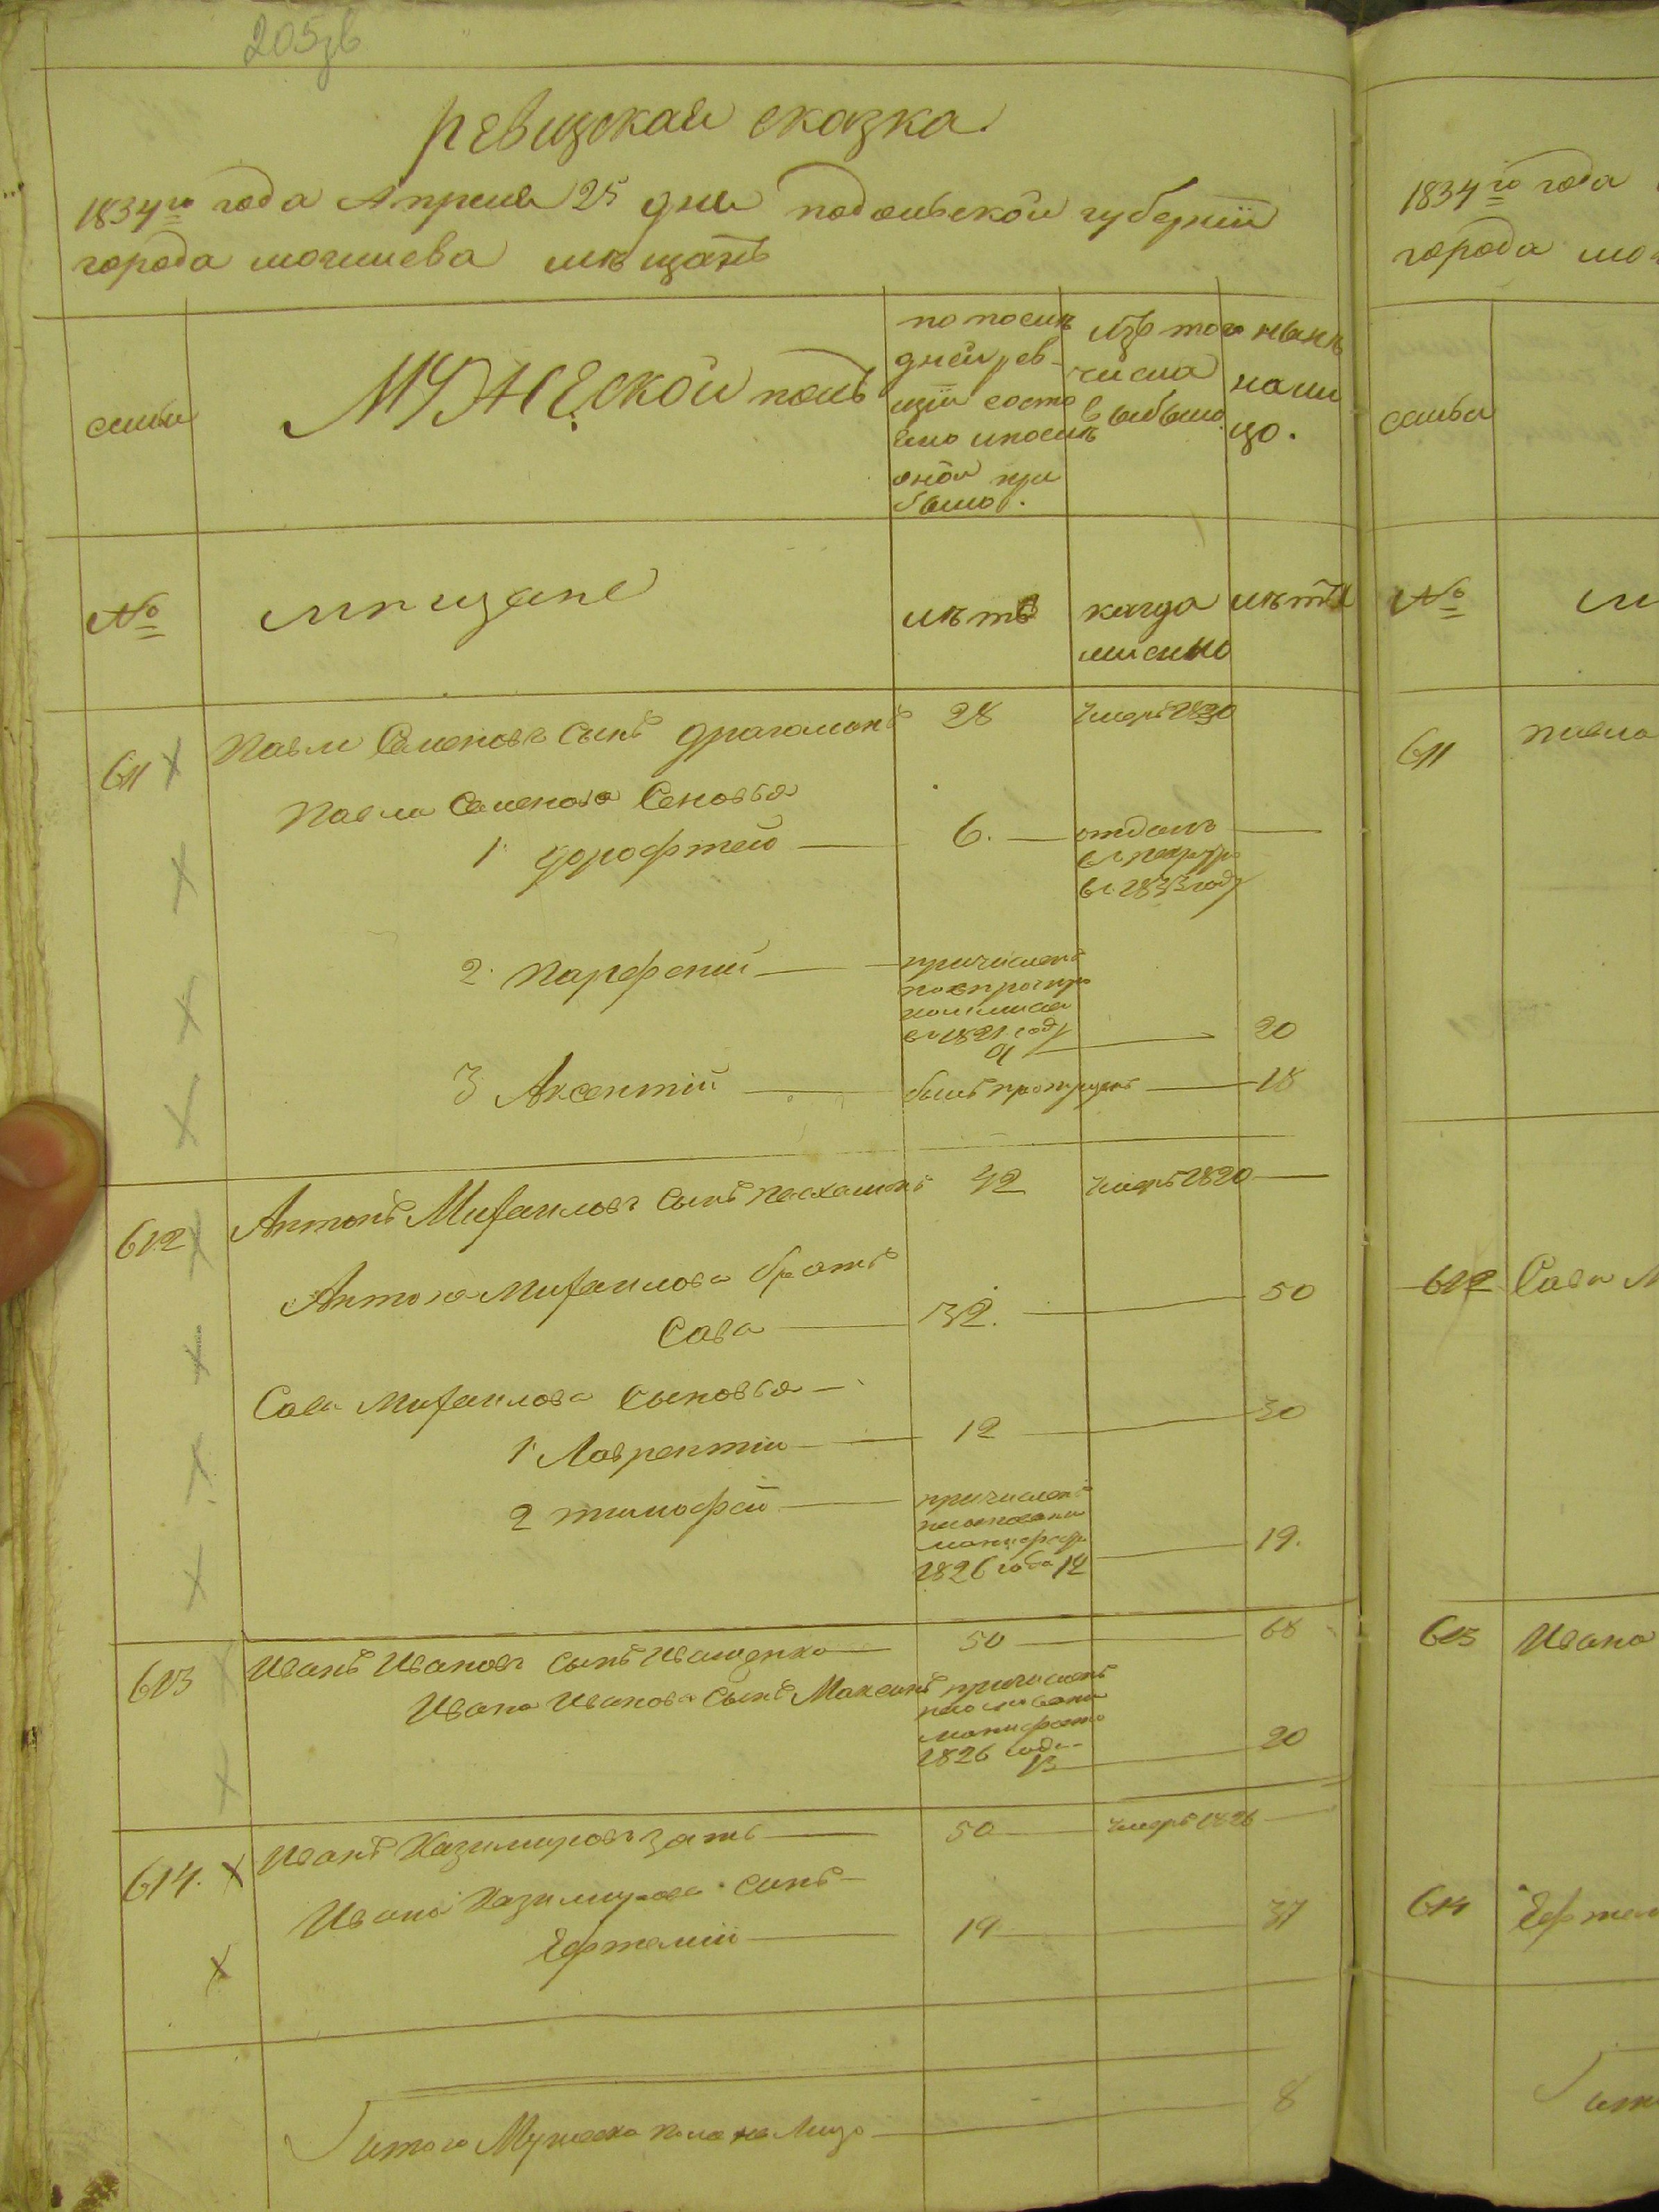 205зв
Ревизская сказка
1834го года Апреля 25 дня подольской губернїи
города могилева мѣщанъ
семьи
МУЖЕСКОЙ полъ
по послѣ
дней рев-
изїи состо
яло и послѣ
оной при
было.
Изъ того
числа
выбыло.
нынѣ
на ли
цо.
№
мѣщане
лѣтъ
когда
имянно
лѣтъ
611
Павел Семеновъ сынъ драгоманъ
28
умеръ 1830
Павла Семенова Сеновья
1. дорофтей
6.
отданъ
въ рекруты
въ 1833 году
2. Парфений
причисленъ
в 1821 году
9
20
3 Аксентїй
былъ пропущенъ
18
612
Антонъ Михаиловъ сынъ
42
умеръ 1820
Антона Михаилова братъ
Сава
32.
50
Савы Михаилова Сыновья
1. Лаврентїи
12
30
2 тимофей
причисленъ
на основани
манифеста
1826 года 12
19.
613
Иванъ Ивановъ сынъ Иващенко
50
68
Ивана Иванова Сынъ Максимъ
причисленъ
на основани
манифеста
1826 года
13
20
614.
Иванъ Казимировъ зять
50
умеръ 1826
Ивана Казимирова сынъ
Ефтемїй
19
37
итого Мужеска пола на Лицо
8
1834го года
города мо
семьи
№
м
611
Павла
612
Сава М
613
Ивана
614
Ефтем
ито